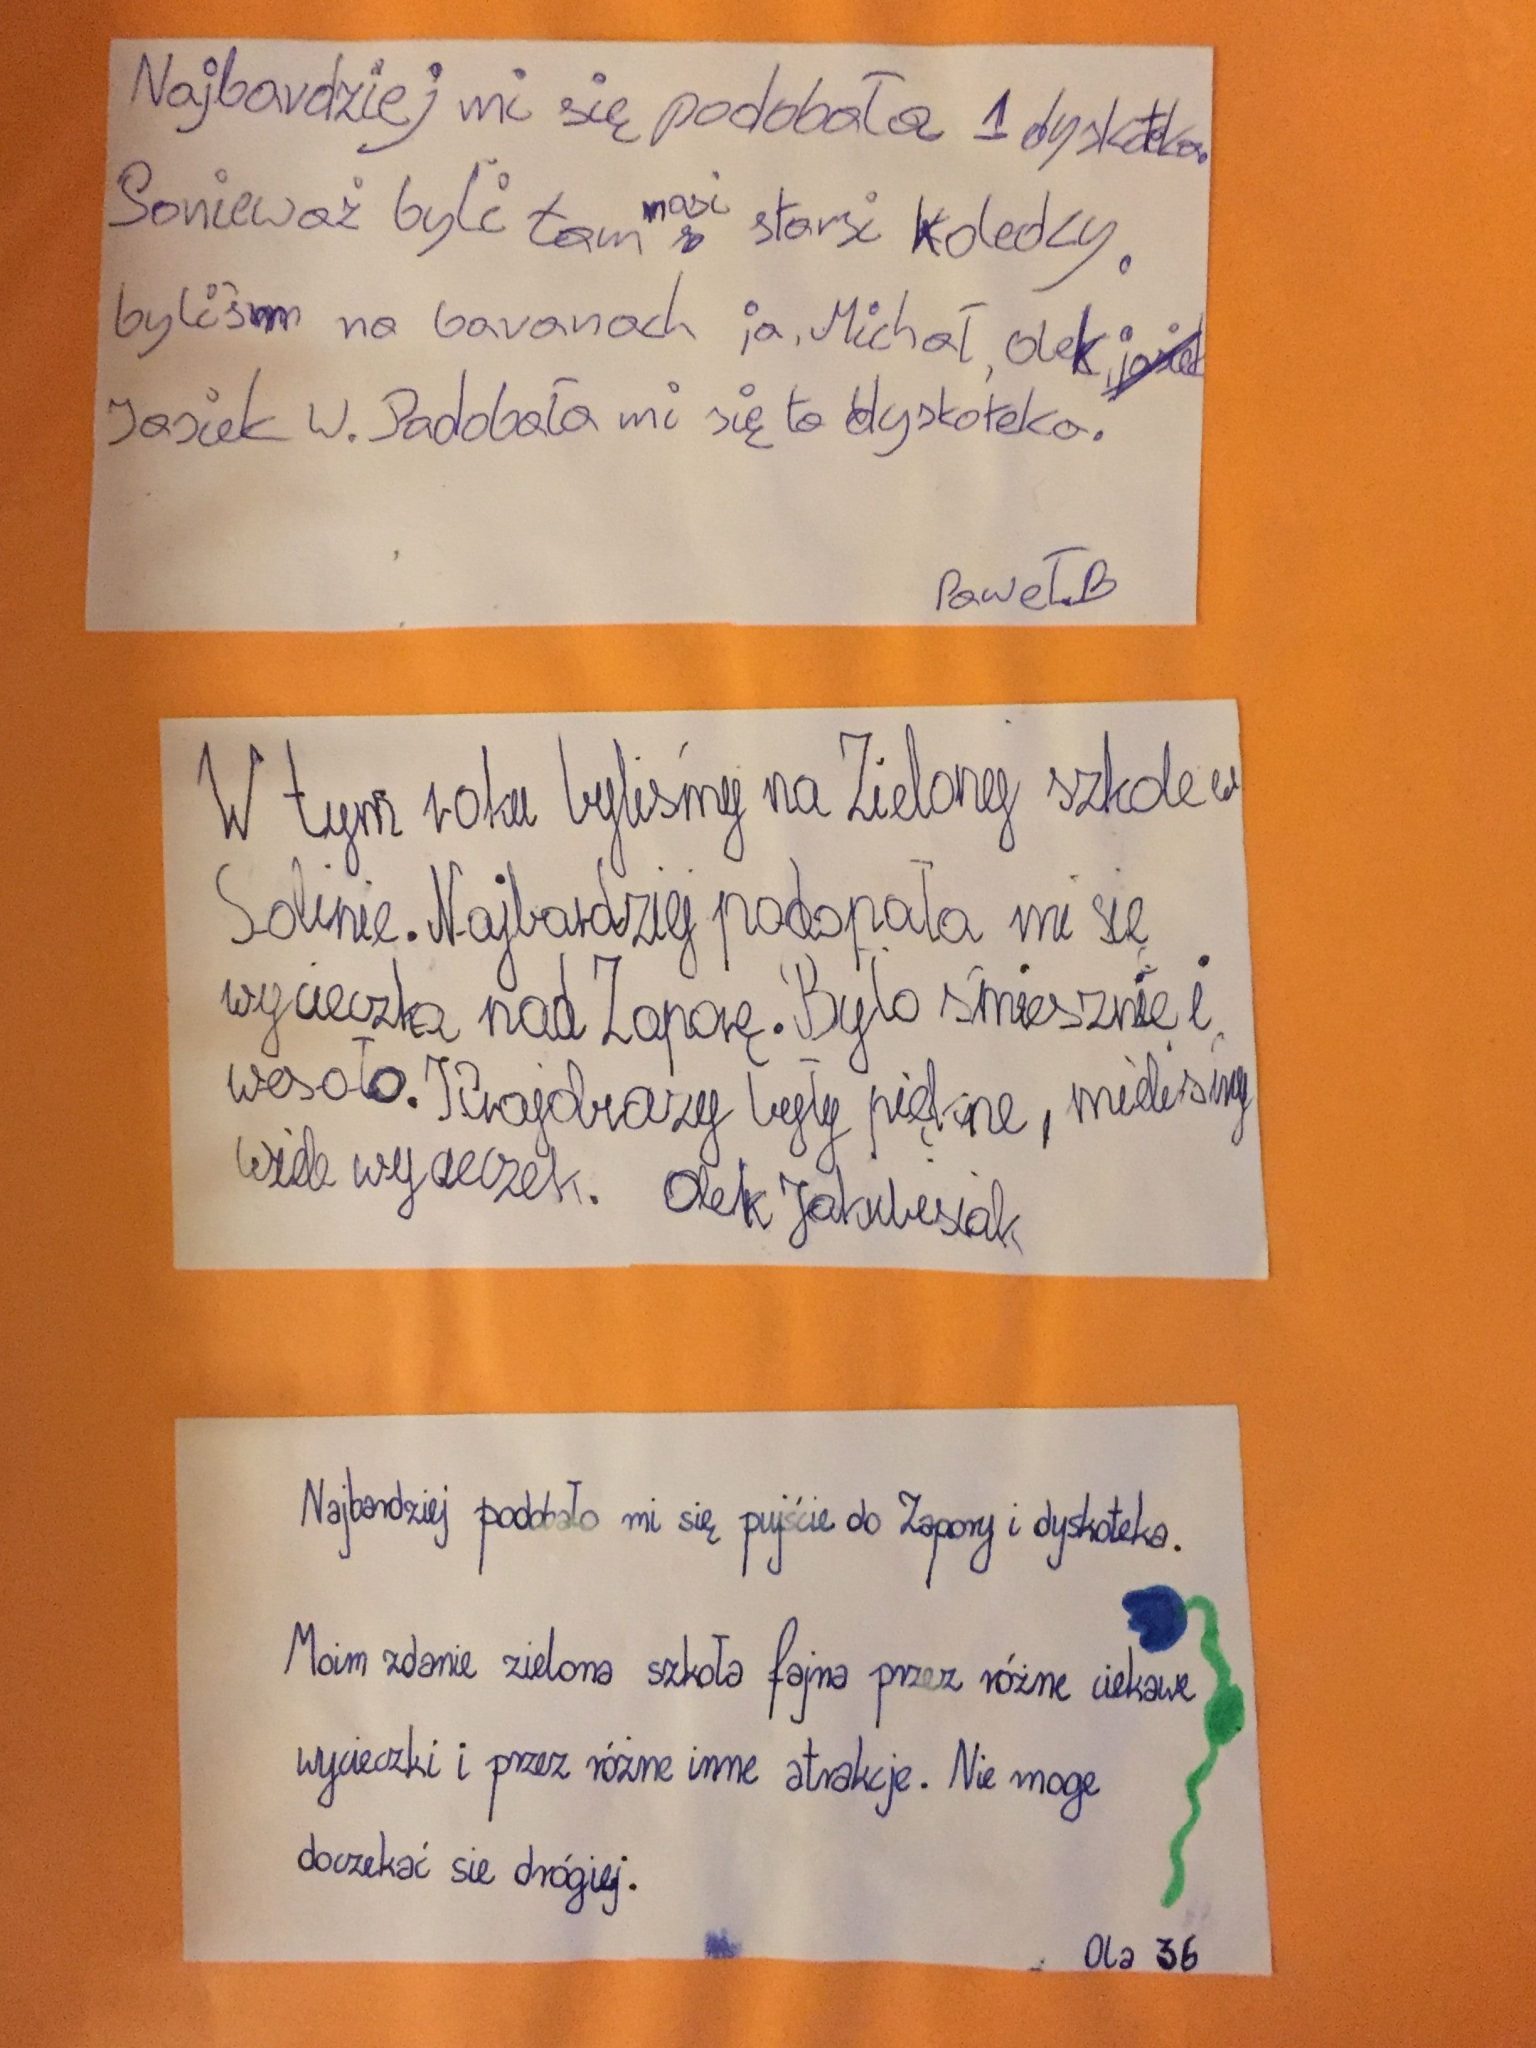 Najbardziej mi się podobała 1 dyskoteka.
Ponieważ byli tam nasi starsi koledzy.
byliśm na baranach ja, Michał, Olek,
Jasiek W. Podobała mi się ta dyskoteka.
Paweł.B
W tym roku byliśmy na Zielonej szkole w
Solinie. Najbardziej podopała mi się
wycieczka nad Zaporę. Było śmiesznie i
wesoło. Krajobrazy były piękne, mieliśmy
wiele wycieczek. Olek Jakubesiak
Najbardziej podobało mi się pujście do Zapory i dyskoteka.
Moim zdanie zielona szkoła fajna przez różne ciekawe
wycieczki i przez różne inne atrakcje. Nie moge
doczekać sie drógiej.
Ola 3b